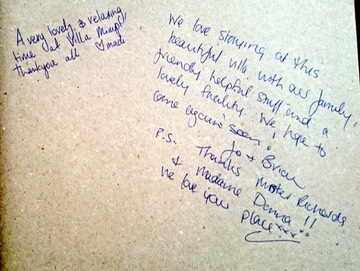 A very lovely & relaxing
time at Villa
thankyou all
We love staying at this
beautiful villa with our family,
friendly helpful staff and a
lovely facility. We hope to
come again soon.
Jo + Brian
P.S. Thanks Mister Richards
& Madame Donna !!
We love your
place xxx